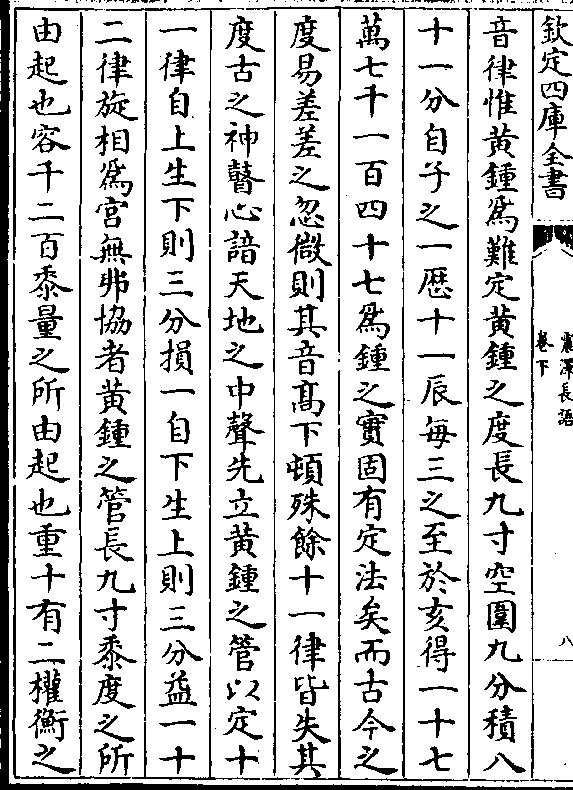 欽定四庫全書
震澤長語
卷下
八
音律惟黃鍾爲難定黃鍾之度長九寸空圍九分積八
十一分自子之一歷十一辰每三之至於亥得一十七
萬七千一百四十七爲鍾之實固有定法矣而古今之
度易差差之忽微則其音髙下頓殊餘十一律皆失其
度古之神瞽心諳天地之中聲先立黃鍾之管以定十
一律自上生下則三分損一自下生上則三分益一十
二律旋相爲宮無弗協者黃鍾之管長九寸黍度之所
由起也容千二百黍量之所由起也重十有二權衡之